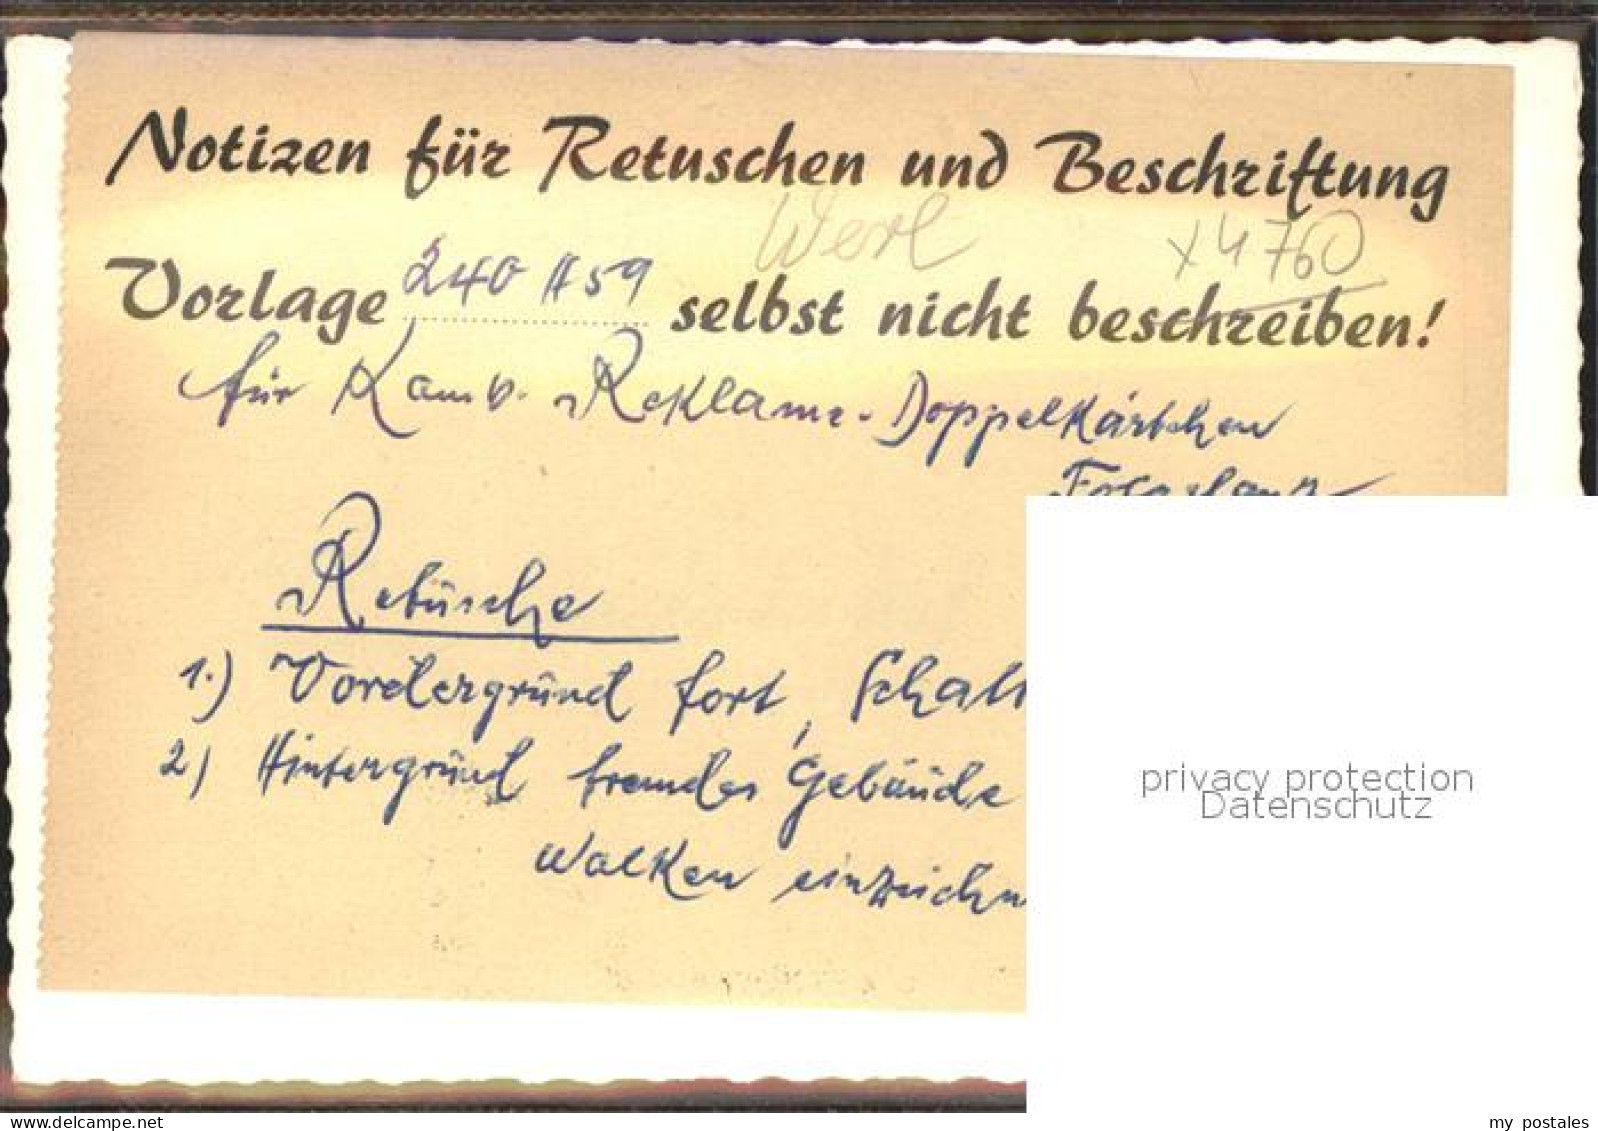 Notizen für Retuschen und Beschriftung
Werl x4760
Vorlage 240 A 59 selbst nicht beschreiben!
für Kamb. Reklame-Doppelkärtchen
Retüsche
1.) Vordergründ fort, Schatt
2) Hintergründ fremdes Gebäüde
Wolken einzeichn
privacy protection
Datenschutz
www.delcampe.net
my_postales